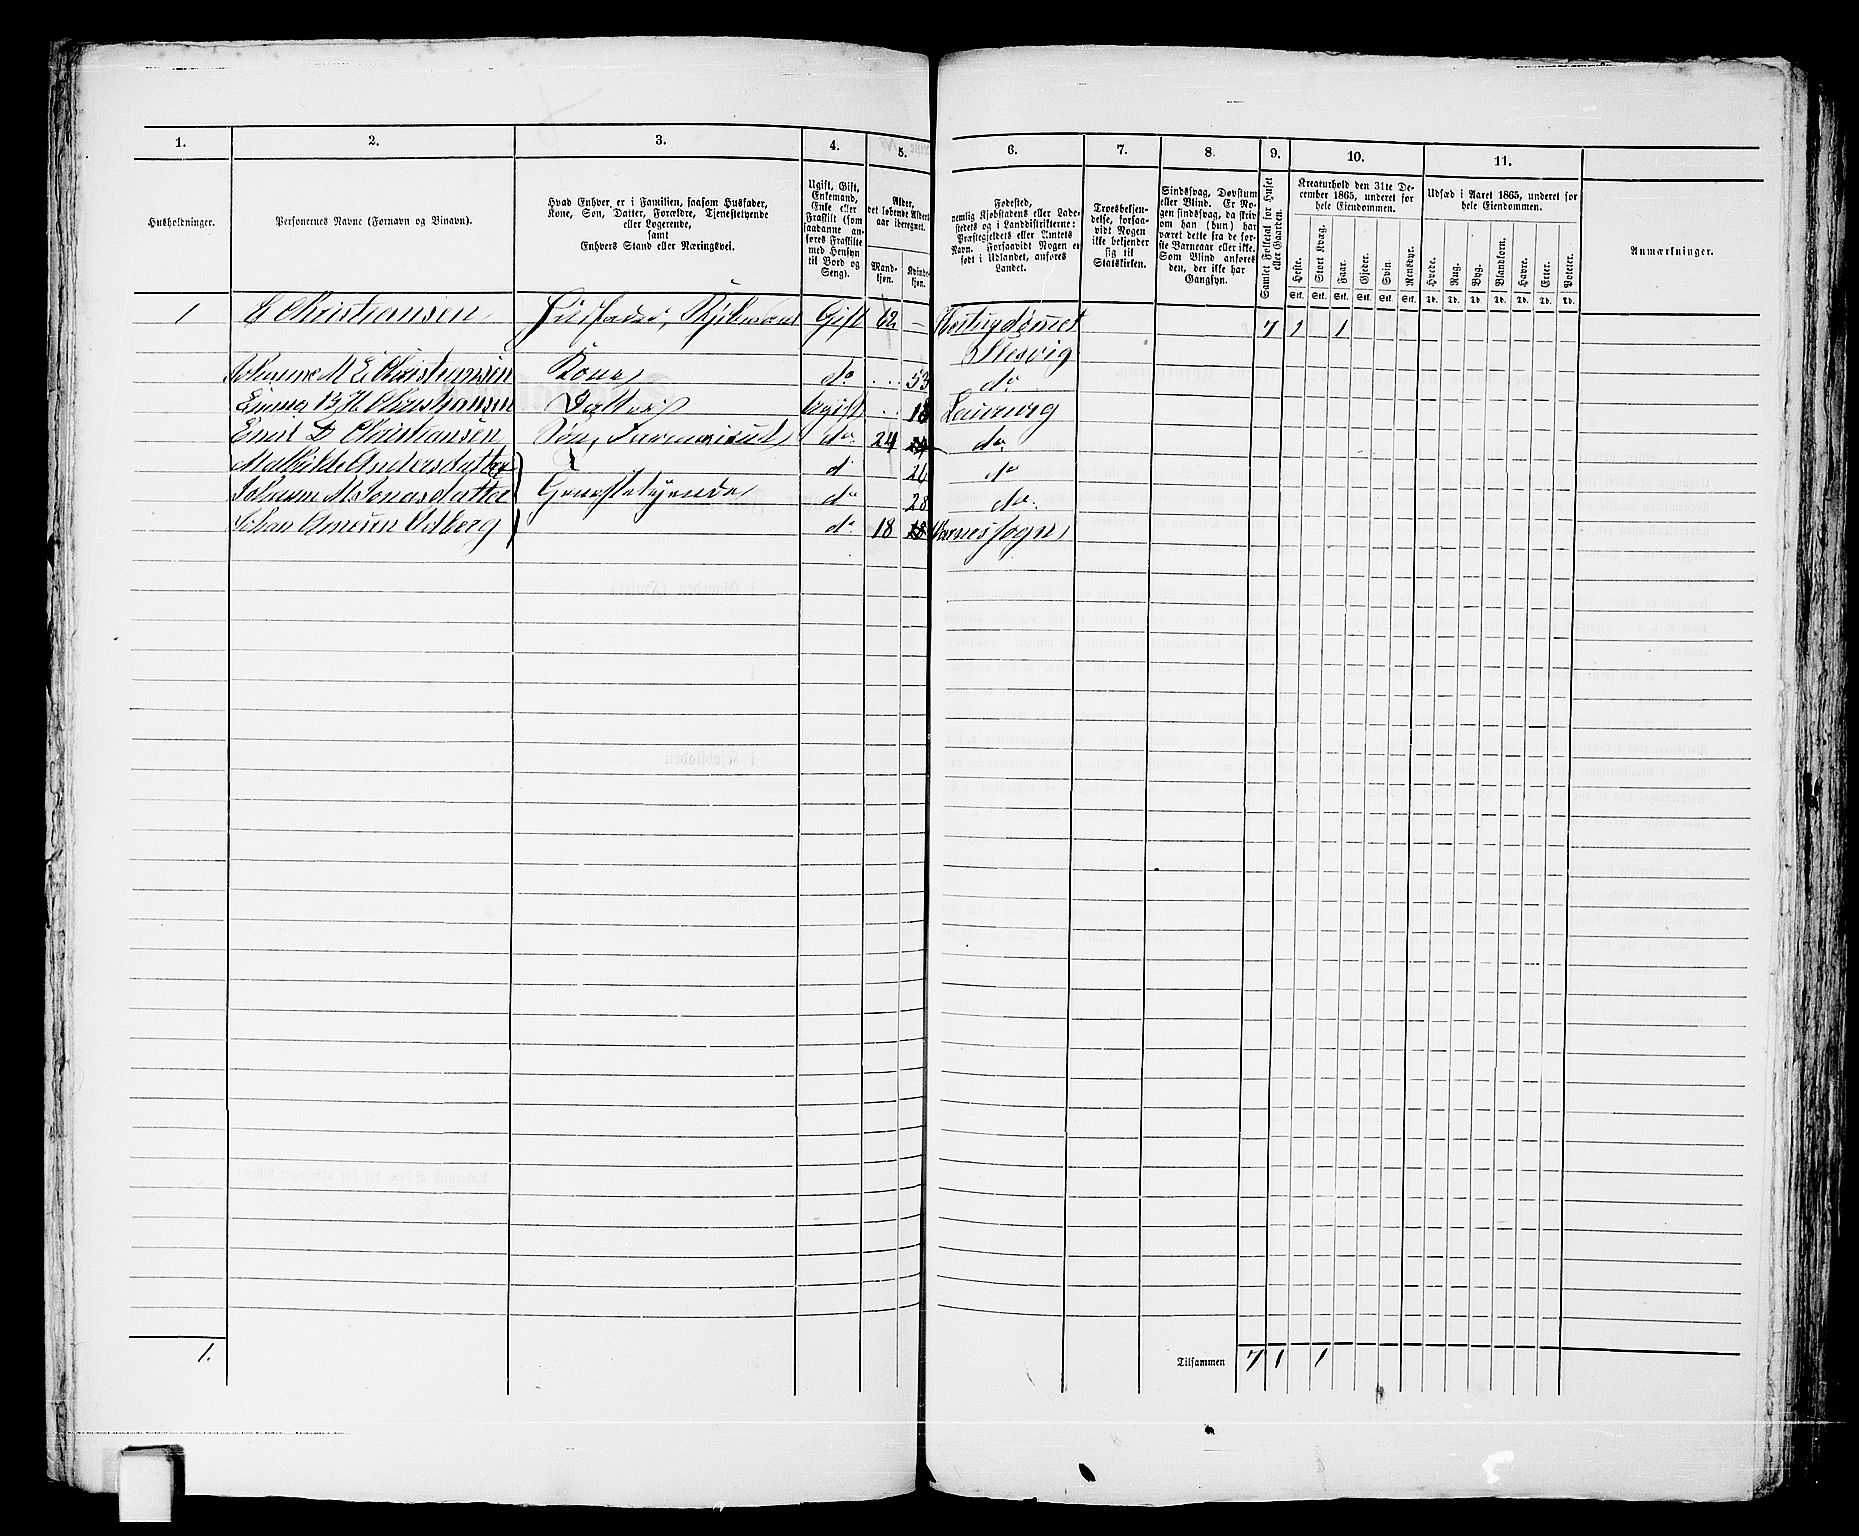 1. 2. 3. 4. 5. 6. 7. 8. 9. 10. 11.
Husholdninger.
Personernes Navne (Fornavn og Binavn).
Hvad Enhver er i Familien, saasom Husfader,
Kone, Søn, Datter, Forældre, Tjenestetyende
eller Logerende,
samt
Enhvers Stand eller Næringsvei.
Ugift, Gift,
Enkemand,
Enke eller
Fraskilt (som
saadanne an-
føres Fraskilte
med Hensyn
til Bord og
Seng).
Alder,
det løbende Alders-
aar iberegnet.
Mand-
kjøn.
Kvinde-
kjøn.
Fødested,
nemlig Kjøbstadens eller Lade-
stedets og i Landdistrikterne:
Præstegjeldets eller Amtets
Navn. Forsaavidt Nogen er
født i Udlandet, anføres
Landet.
Troesbekjen-
delse, forsaa-
vidt Nogen
ikke bekjender
sig til
Statskirken.
Sindssvag, Døvstum
eller Blind. Er No-
gen sindssvag, da skriv
om han (hun) har
været dette fra de før-
ste Barneaar eller ikke.
Som Blind anføres
den, der ikke har
Gangsyn.
Samlet Folketal for Huset
eller Gaarden.
Kreaturhold den 31te De-
cember 1865, underet for
hele Eiendommen.
Heste. Stort Kvæg. Faar. Gjeder. Svin. Rensdyr.
Stk. Stk. Stk. Stk. Stk. Stk.
Udsæd i Aaret 1865, underet for
hele Eiendommen.
Hvede. Rug. Byg. Blandkorn. Havre. Erter. Poteter.
Td. Td. Td. Td. Td. Td. Td.
Anmærkninger.
1 Christiansen Husfader, Gift 62 — Hertugdømmet 7 1 1
Slesvig
Johanne M E Christiansen Kone do 53 do
Emma B H Christiansen Datter Ugift 18 Laurvig
Emil D Christiansen Søn, Farmaceut do 24 24 do
Mathilde Andersdatter d 26 do
M Jonasdatter Tjenestetyende do 28 do
Johan Odberg do 18 18 Sogn
1. Tilsammen 7 1 1